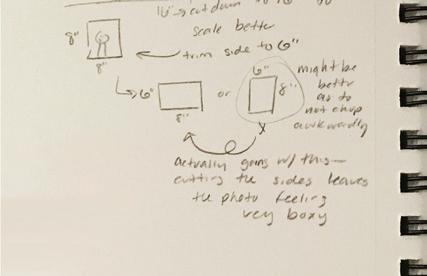 cut down
scale better
8"
8"
trim side to 6"
6"
8"
or
6"
8"
might be
bettr
as to
not chop
awkwardly
x
actually going w/ this—
cutting the sides leaves
the photo feeling
very boxy